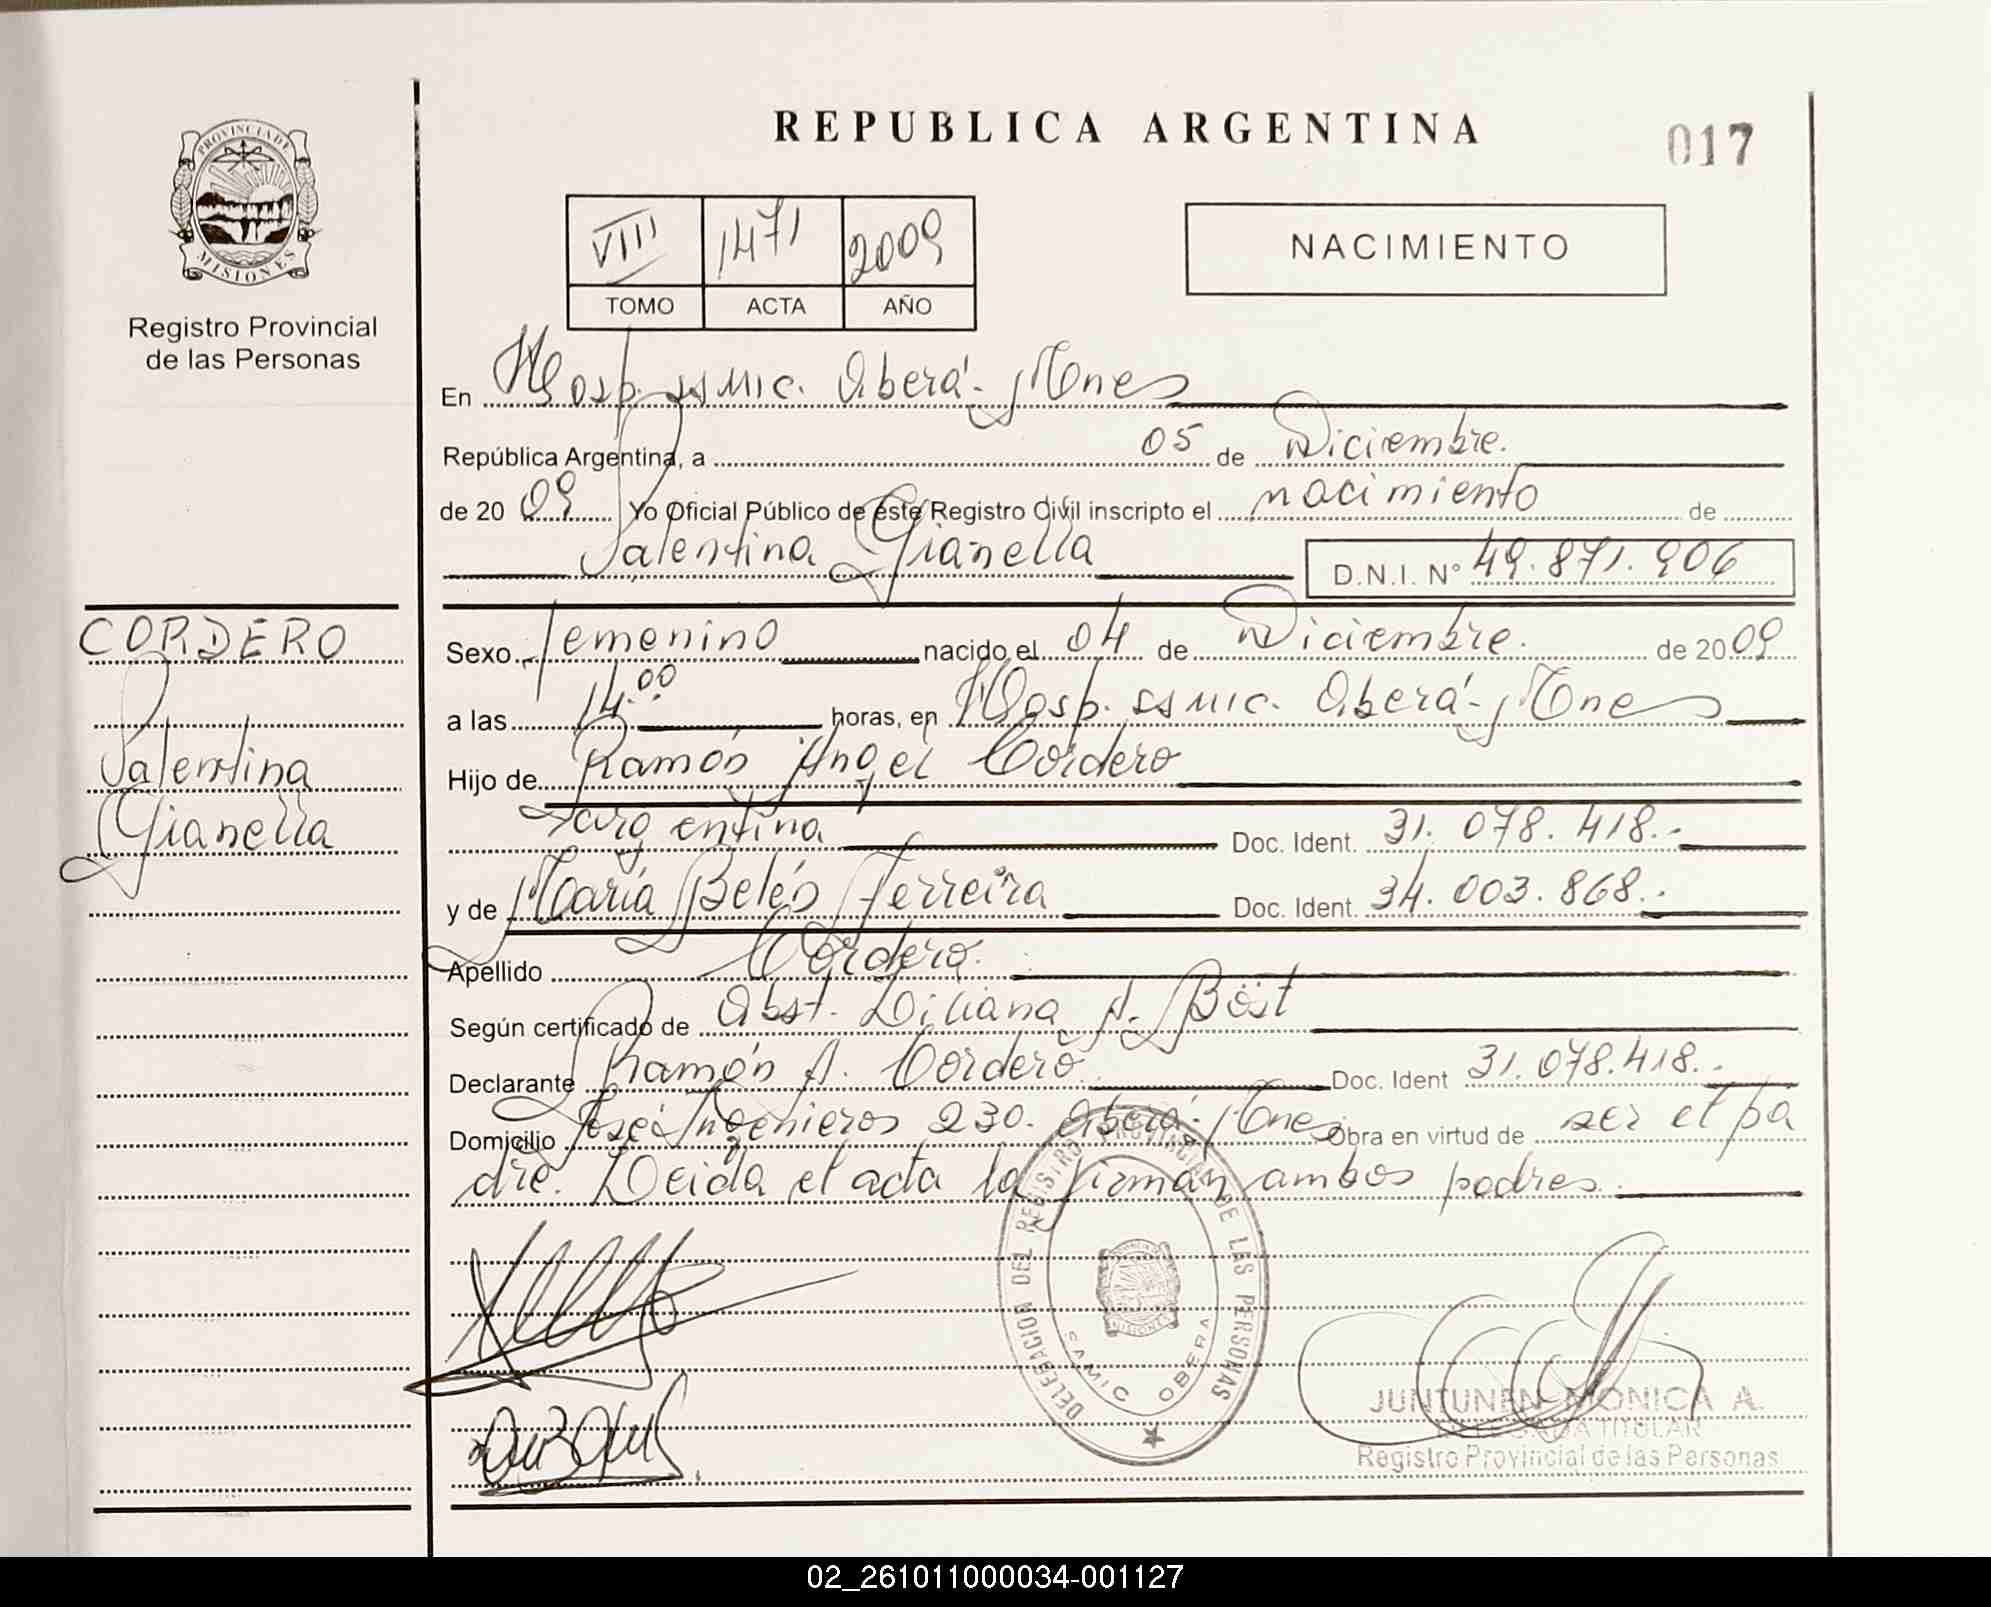 REPUBLICA ARGENTINA
017
PROVINCIA DE
MISIONES
Registro Provincial
de las Personas
VIII 1471 2009
TOMO ACTA AÑO
NACIMIENTO
En Hosp. ssmic. Oberá - Mnes
República Argentina, a 05 de Diciembre.
de 2009 Yo Oficial Público de este Registro Civil inscripto el nacimiento de
Valentina Gianella D.N.I. Nº 49.871.906
CORDERO
Valentina
Gianella
Sexo femenino nacido el 04 de Diciembre. de 2009
a las 14.00 horas, en Hosp. ssmic. Oberá - Mnes
Hijo de Ramón Angel Cordero
argentina Doc. Ident. 31.078.418.-
y de María Belén Ferreira Doc. Ident. 34.003.868.-
Apellido Cordero.
Según certificado de Obst. Liliana A. Böst
Declarante Ramón A. Cordero Doc. Ident 31.078.418.-
Domicilio José Ingenieros 230. Oberá - Mnes Obra en virtud de ser el pa
dre. Leida el acta la firman ambos padres.
DELEGACION DEL REGISTRO PROVINCIAL DE LAS PERSONAS
SAMIC OBERA
MISIONES
JUNTUNEN MONICA A.
DELEGADA TITULAR
Registro Provincial de las Personas
02_261011000034-001127